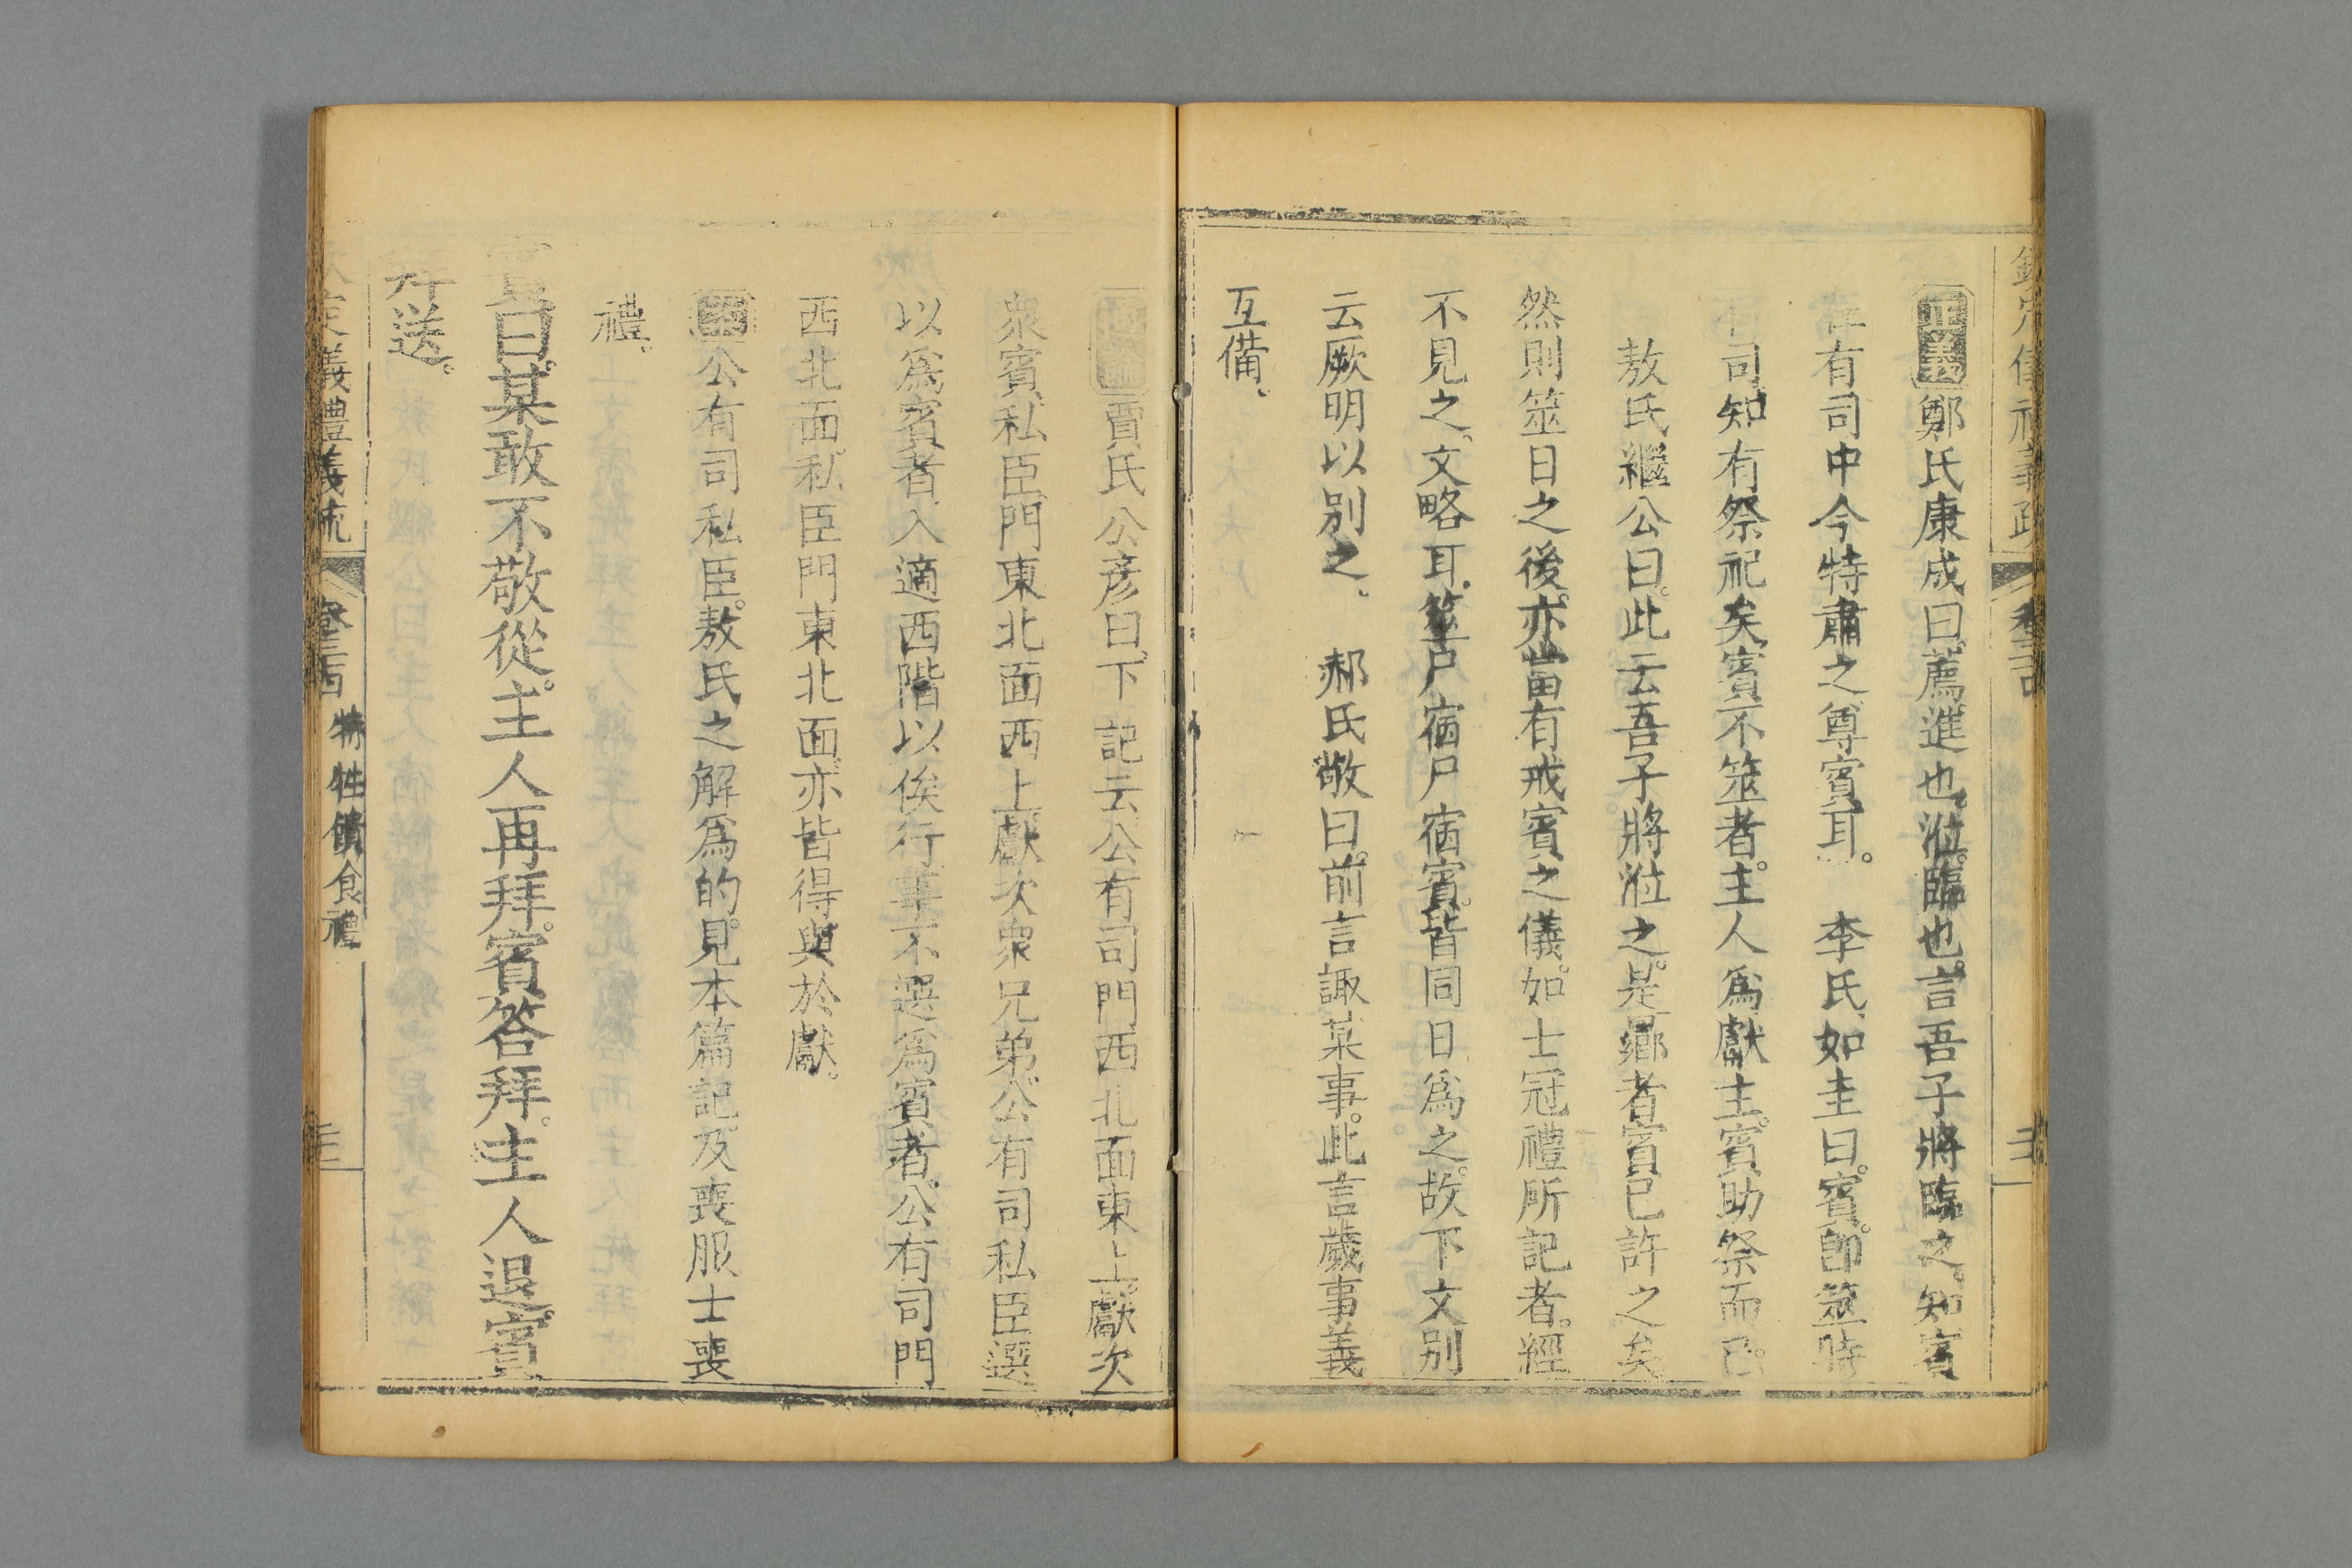 欽定儀禮義疏 卷三
正義鄭氏康成曰薦進也涖臨也言吾子將臨之知賓
在有司中今特肅之尊賓耳。 李氏如圭曰賓卽筮時
有司知有祭祀矣賓不筮者主人爲獻主賓助祭而已
敖氏繼公曰此云吾子將涖之是曏者賓已許之矣
然則筮日之後亦當有戒賓之儀如士冠禮所記者經
不見之文略耳筮尸宿尸宿賓皆同日爲之故下文别
云厥明以别之 郝氏敬曰前言諏某事此言歲事義
互備
賈氏公彥曰下記云公有司門西北面東上獻次
衆賓私臣門東北面西上獻次衆兄弟公有司私臣選
以爲賓者入適西階以俟行事不選爲賓者公有司門
西北面私臣門東北面亦皆得與於獻
公有司私臣敖氏之解爲的見本篇記及喪服士喪
禮
賓曰某敢不敬從主人再拜賓答拜主人退賓
拜送
定義禮義疏 卷三 特牲饋食禮